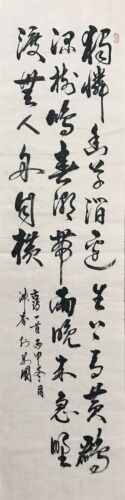 獨憐幽草澗邊生上有黃鸝
深樹鳴春潮帶雨晚來急野
渡無人舟自橫
古詩一首丙申冬月